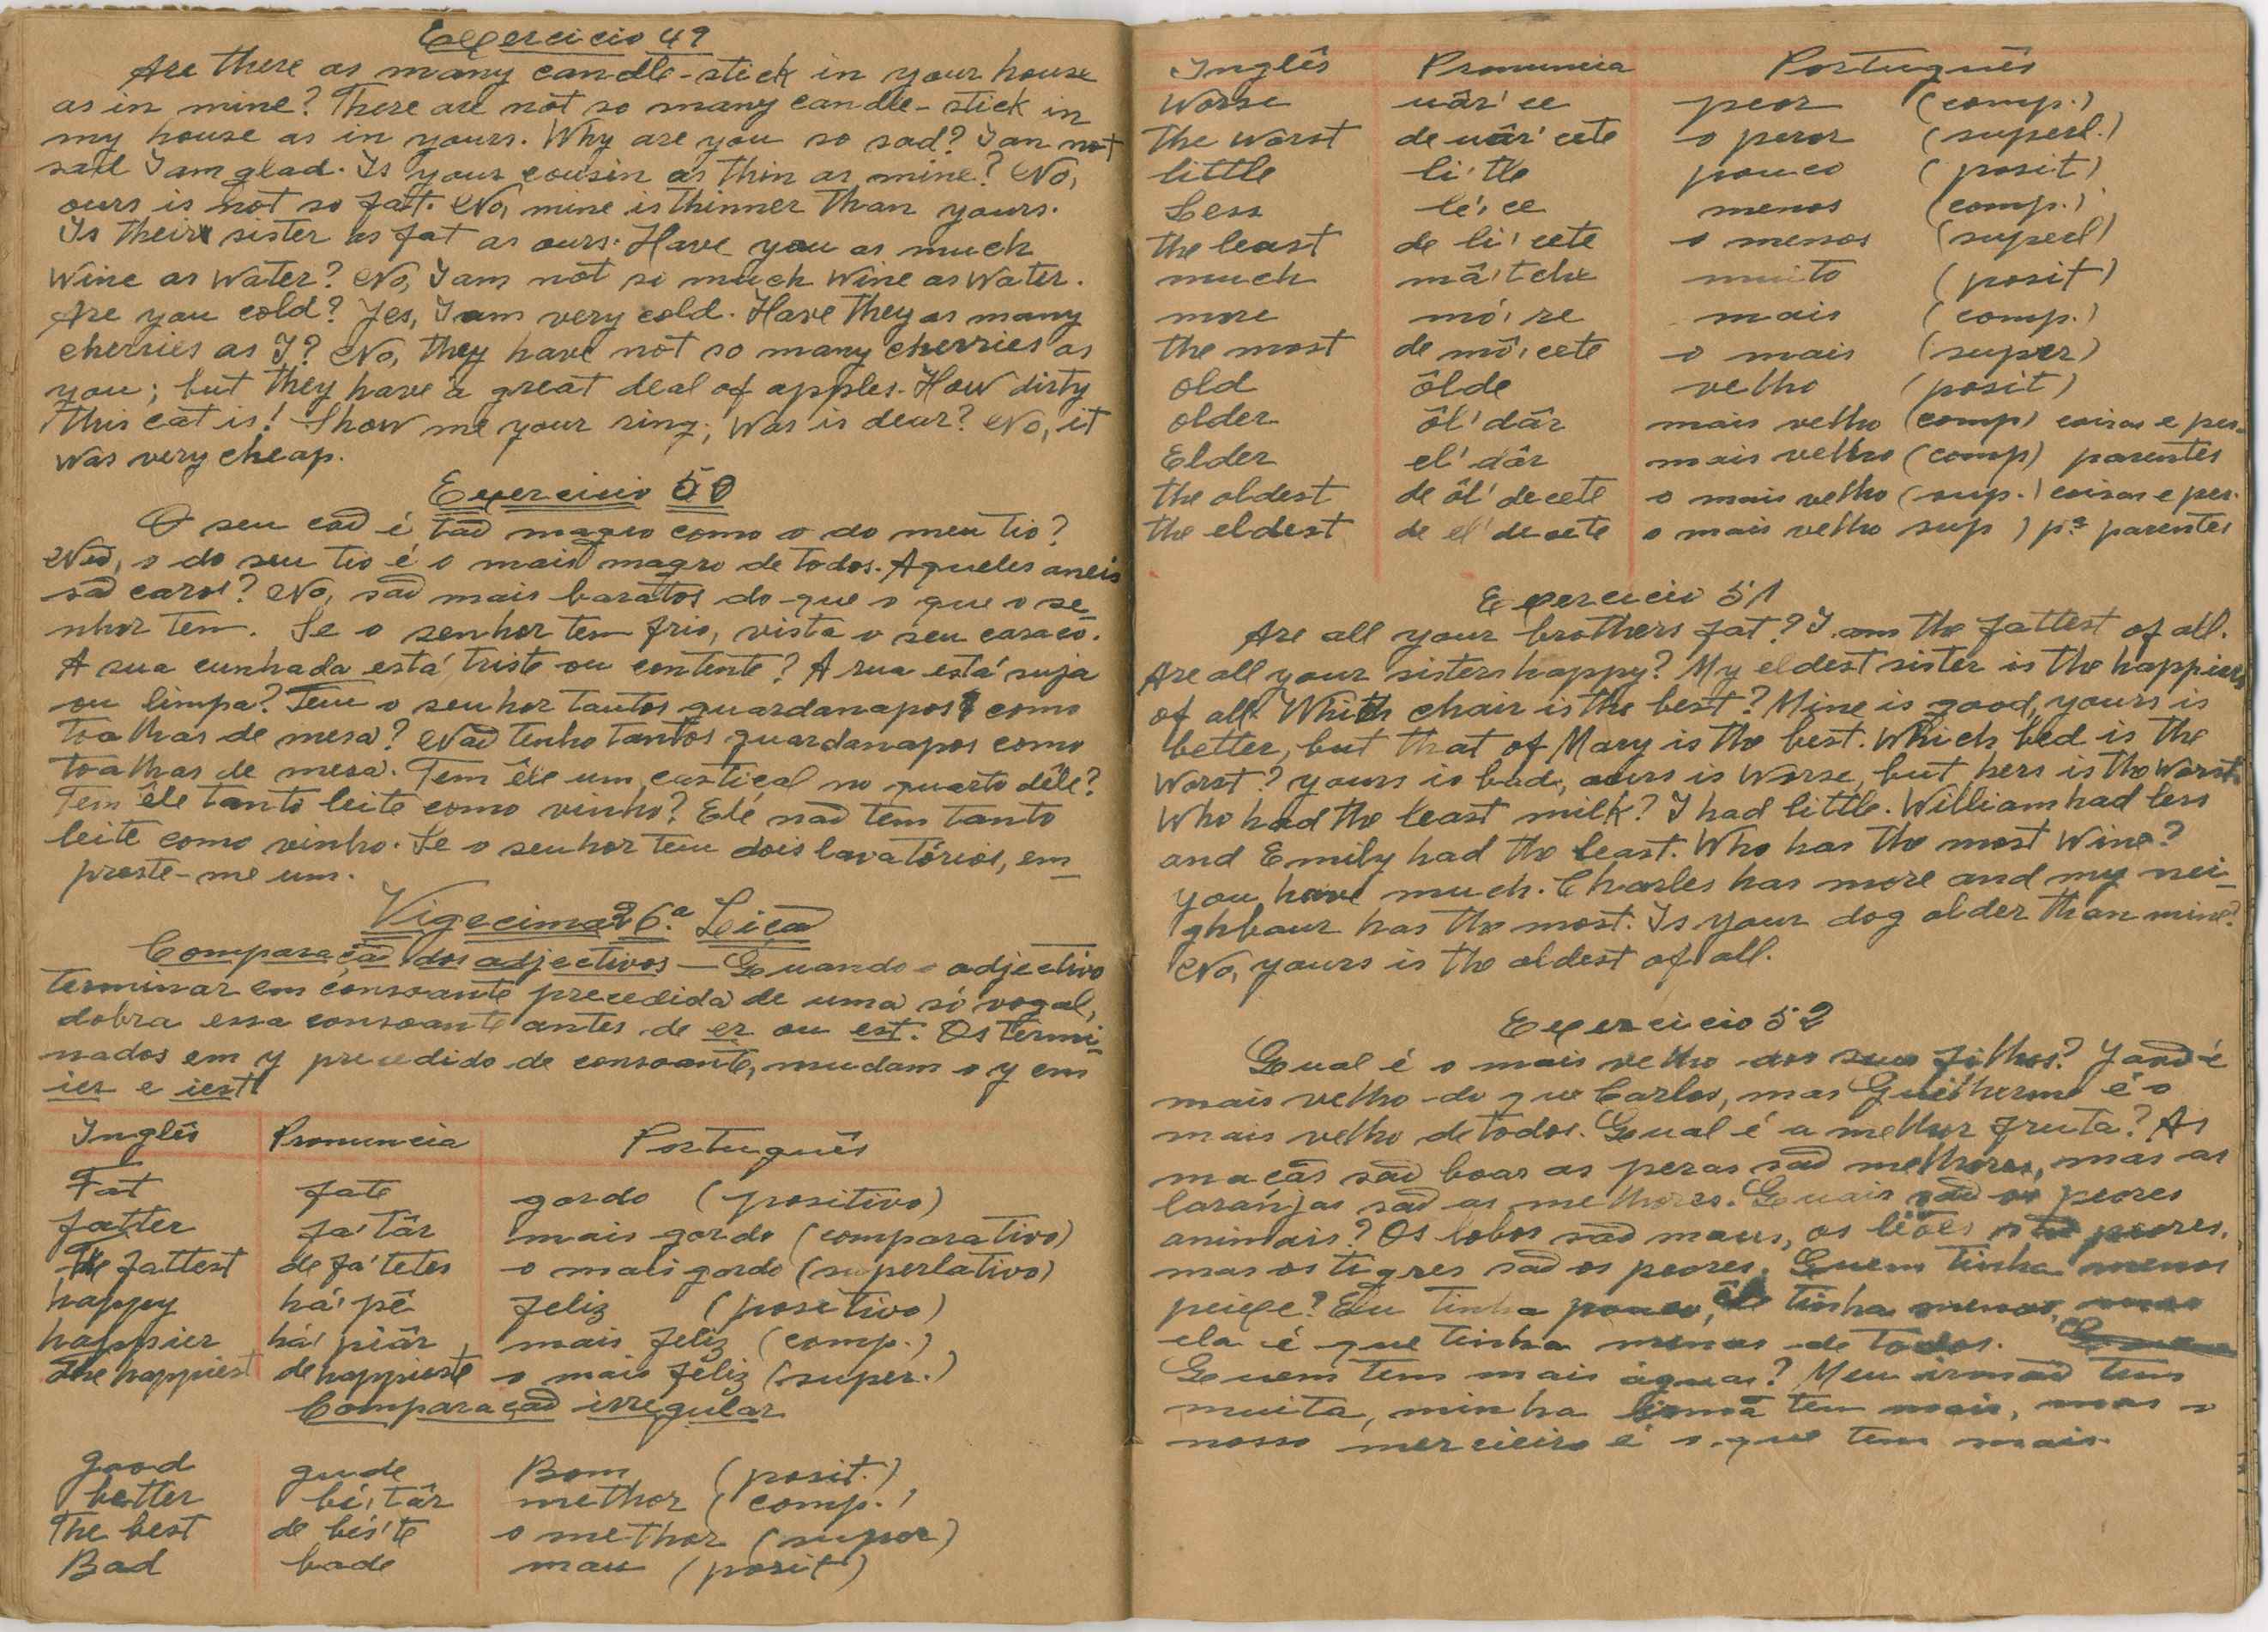 Exercicio 49
Are there as many candle-stick in your house
as in mine? There are not so many candle-stick in
my house as in yours. Why are you so sad? I am not
sad I am glad. Is your cousin as thin as mine? No,
ours is not so fat. No, mine is thinner than yours.
Is their sister as fat as ours. Have you as much
wine as water? No, I am not so much wine as water.
Are you cold? Yes, I am very cold. Have they as many
cherries as I? No, they have not so many cherries as
you; but they have a great deal of apples. How dirty
this cat is! Show me your ring; Was is dear? No, it
was very cheap.
Exercicio 50
O seu cão é tão magro como o do meu tio?
Não, o do seu tio é o mais magro de todos. Aqueles aneis
são caros? No, são mais baratos do que o que o se-
nhor tem. Se o senhor tem frio, vista o seu casaco.
A sua cunhada está triste ou contente? A rua está suja
ou limpa? Tem o senhor tantos guardanapos como
toalhas de mesa? Não tenho tantos guardanapos como
toalhas de mesa. Tem êle um castiçal no quarto dêle?
Tem êle tanto leite como vinho? Ele não tem tanto
leite como vinho. Se o senhor tem dois lavatórios, em-
preste-me um.
Vigecima 26.ª Lição
Comparação dos adjectivos — Quando o adjectivo
terminar em consoante precedida de uma só vogal,
dobra essa consoante antes de er ou est. Os termi-
nados em y precedido de consoante, mudam o y em
ier e iest
Inglês Pronuncia Português
Fat fate gordo (positivo)
fatter fa'târ mais gordo (comparativo)
The fattest de fá'tetes o mais gordo (superlativo)
happy há'pê feliz (positivo)
happier há'piâr mais feliz (comp.)
The happiest de happieste o mais feliz (super.)
Comparação irregular
good gude Bom (posit.)
better bé'târ melhor (comp.)
The best de bés'te o melhor (super)
Bad bade mau (posit)
Inglês Pronuncia Português
Worse uâr'ce peor (comp.)
the worst de uâr'cete o peor (superl.)
little li'tle pouco (posit)
Less lé'ce menos (comp.)
the least de li'cete o menos (superl)
much mâ'tche muito (posit)
more mó're mais (comp.)
the most de mô'cete o mais (super)
old ôlde velho (posit)
older ôl'dâr mais velho (comp) coisas e pes.
Elder el'dâr mais velho (comp) parentes
the oldest de ôl'decete o mais velho (sup.) coisas e pes.
the eldest de el'decete o mais velho sup) pª parentes
Exercicio 51
Are all your brothers fat? I am the fattest of all.
Are all your sisters happy? My eldest sister is the happiest
of all. Which chair is the best? Mine is good, yours is
better, but that of Mary is the best. Which bed is the
worst? yours is bad, ours is worse, but hers is the worst.
Who had the least milk? I had little. William had less
and Emily had the least. Who has the most wine?
you have much. Charles has more and my nei-
ghbour has the most. Is your dog older than mine?
No, yours is the oldest of all.
Exercicio 52
Qual é o mais velho dos seus filhos? João é
mais velho do que Carlos, mas Guilherme é o
mais velho de todos. Qual é a melhor fruta? As
maçãs são boas as peras são melhores, mas as
laranjas são as melhores. Quais são os peores
animais? Os lobos são maus, os liões são peores,
mas os tigres são os peores. Quem tinha menos
peixe? Eu tinha pouco, êle tinha menos, mas
ela é que tinha menos de todos.
Quem tem mais águas? Meu irmão tem
muita, minha irmã tem mais, mas o
nosso merceeiro é o que tem mais.